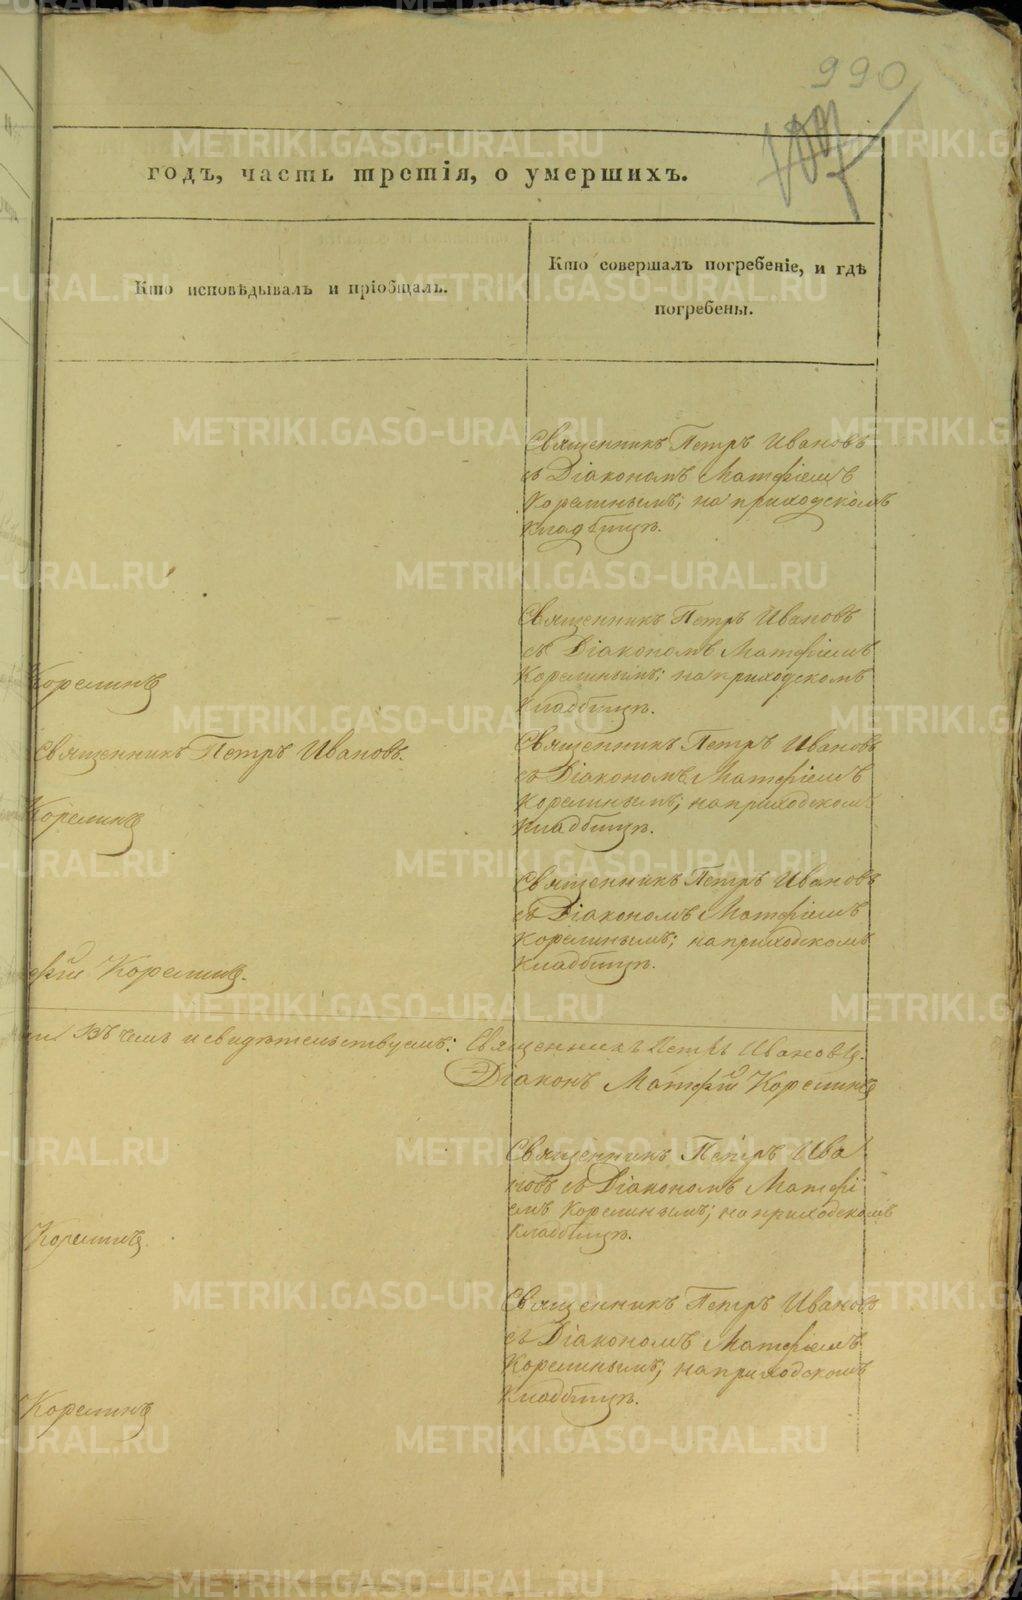 990
годъ, часть третія, о умершихъ.
Кто исповѣдывалъ и пріобщалъ.
Кто совершалъ погребеніе, и гдѣ
погребены.
Священникъ Петръ Ивановъ
съ Діакономъ Матѳіемъ
Корелинымъ; на приходскомъ
кладбищѣ.
Священникъ Петръ Ивановъ
съ Діакономъ Матѳіемъ
Корелинъ
Корелинымъ; на приходскомъ
кладбищѣ.
Священникъ Петръ Ивановъ.
Священникъ Петръ Ивановъ
съ Діакономъ Матѳіемъ
Корелинъ
Корелинымъ; на приходскомъ
кладбищѣ.
Священникъ Петръ Ивановъ
съ Діакономъ Матѳіемъ
Корелинымъ; на приходскомъ
кладбищѣ.
Корелинъ.
Въ чемъ и свидѣтельствуемъ: Священникъ Петръ Ивановъ.
Діаконъ Матѳій Корелинъ
Священникъ Петръ Ива
новъ съ Діакономъ Матѳі
емъ Корелинымъ; на приходскомъ
кладбищѣ.
Корелинъ.
Священникъ Петръ Ивановъ
съ Діакономъ Матѳіемъ
Корелинымъ; на приходскомъ
кладбищѣ.
Корелинъ
METRIKI.GASO-URAL.RU